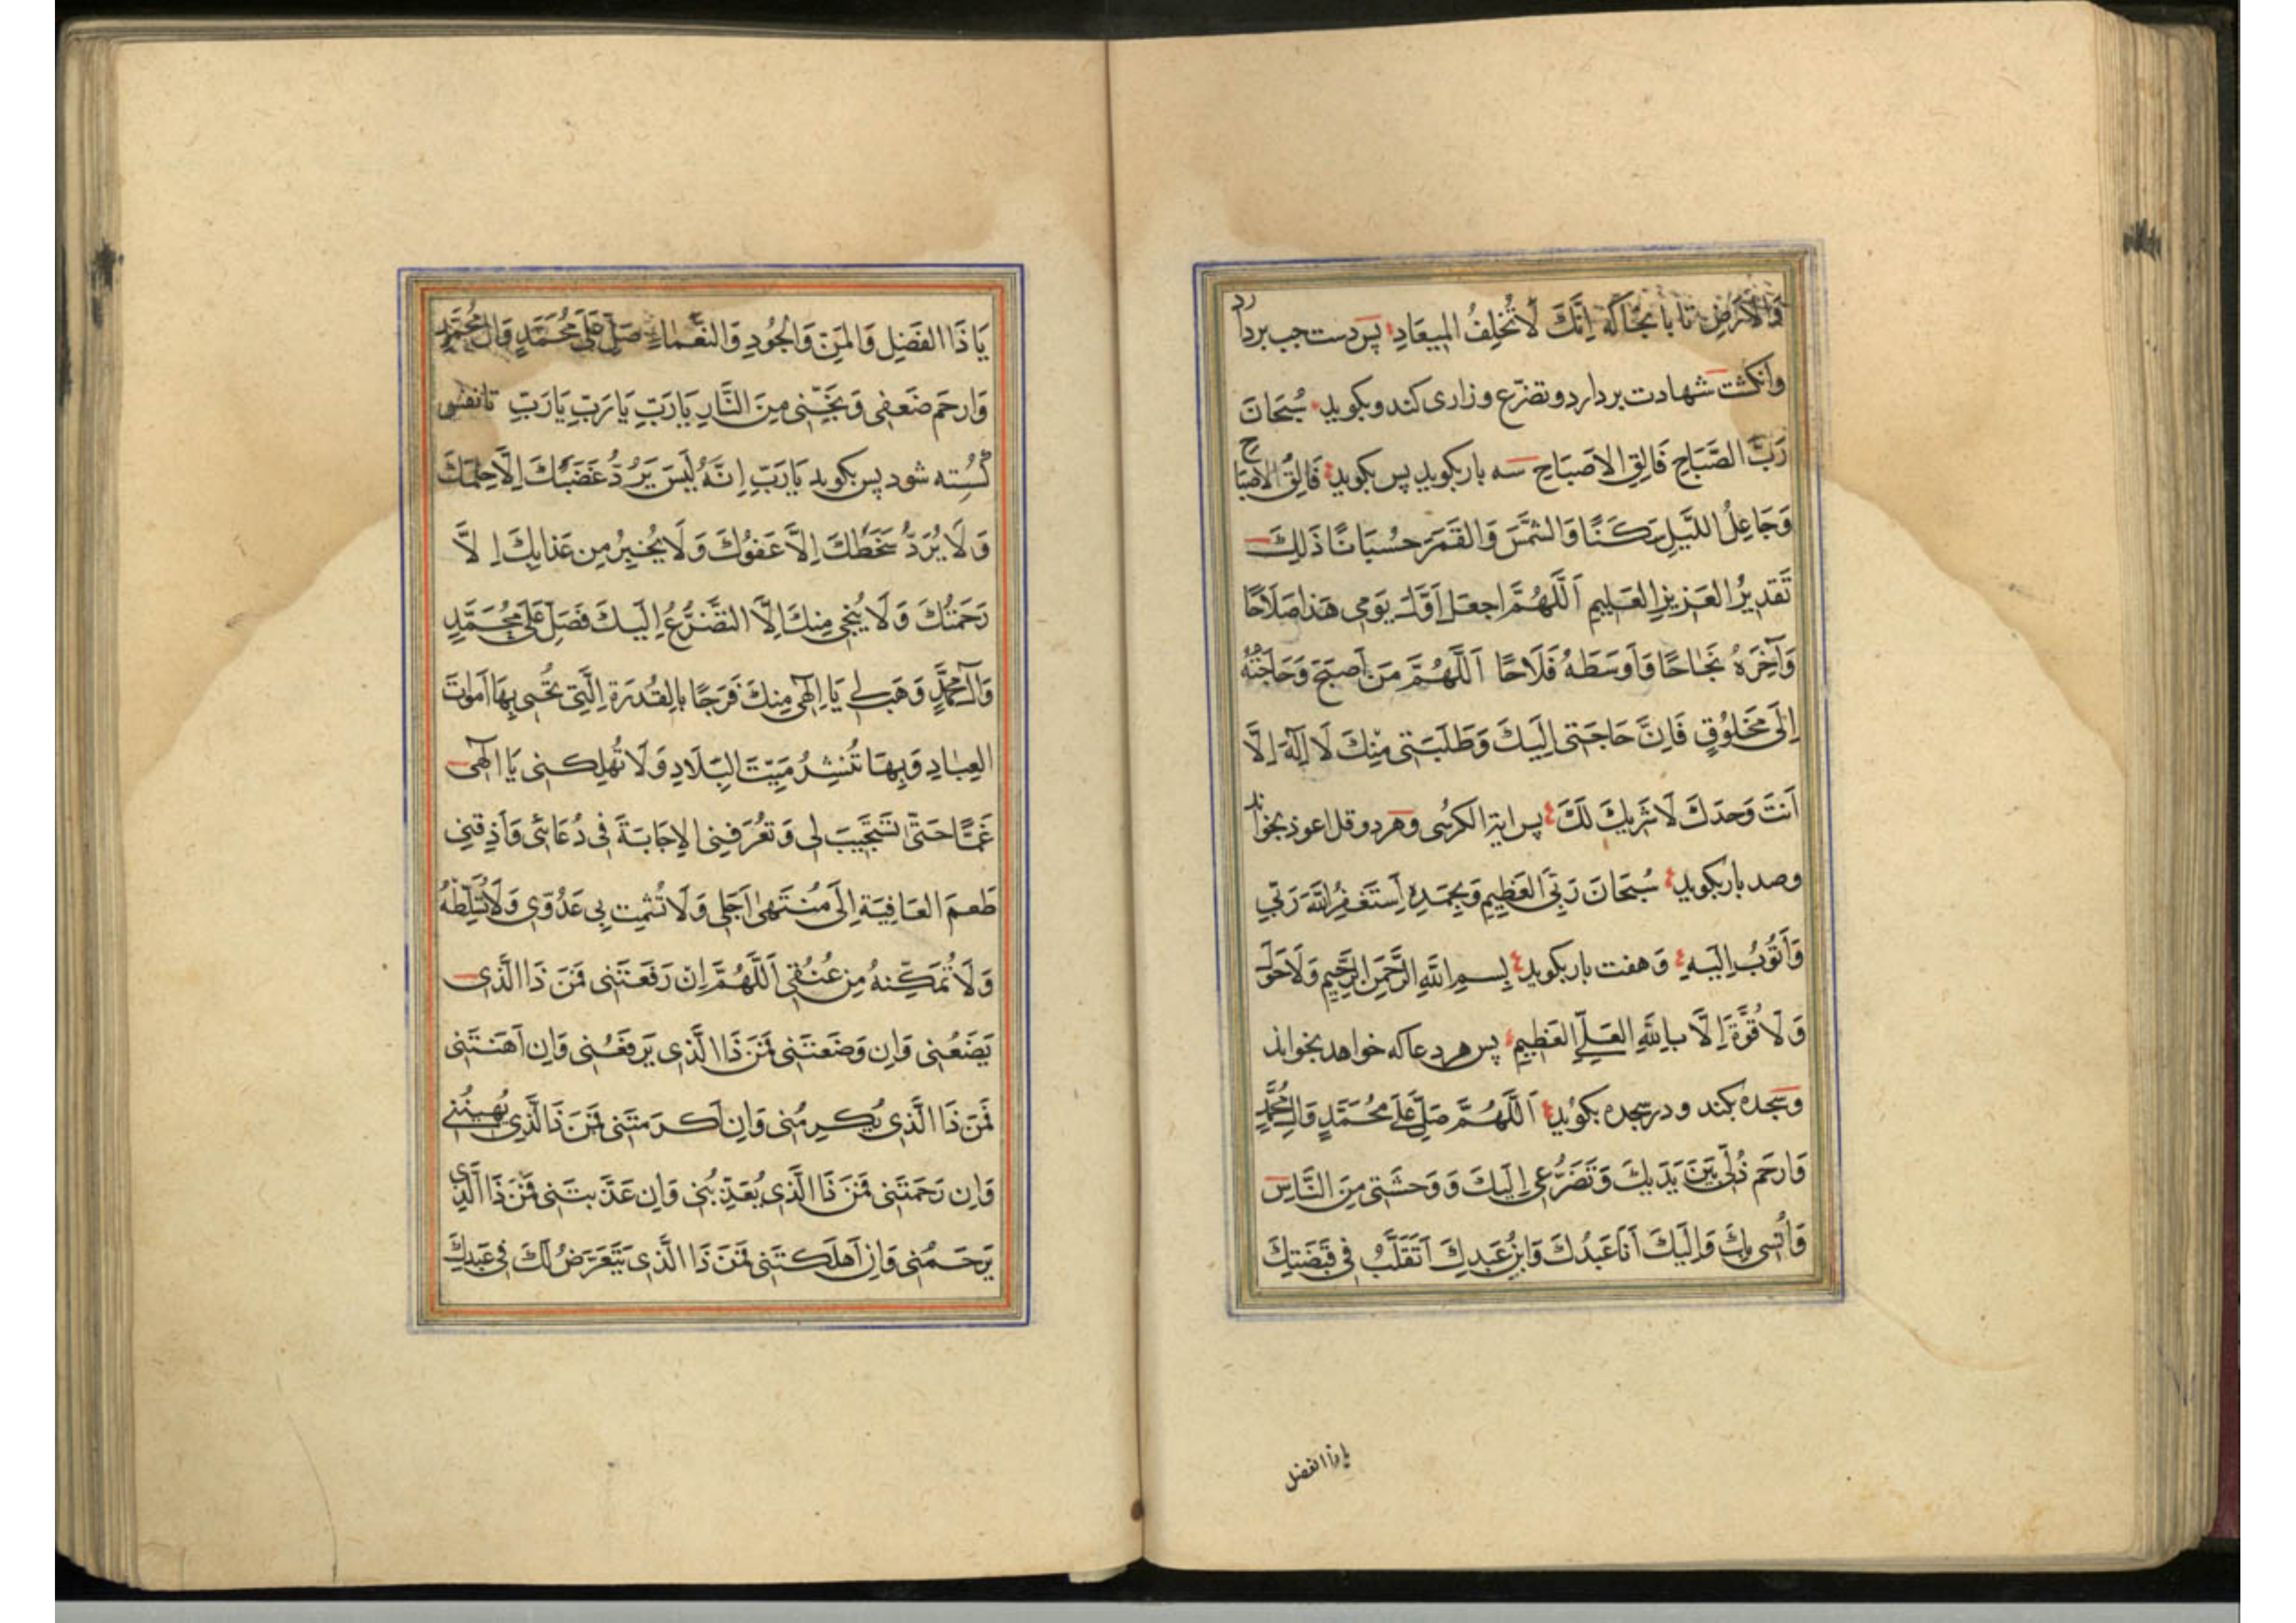 وَالْاَرْضِ تا بانجا که اِنَّكَ لَاتُخْلِفُ المِیعَادِ پس دست چپ بردارد
وانکشت شهادت بردارد وتضرّع وزاری کند وبکوید سُبْحَانَ
رَبِّ الصَّبَاحِ فَالِقِ الاَصْبَاحِ سه بار بکوید پس بکوید فَالِقُ الاَصْبَاحِ
وَجَاعِلُ اللَّیْلِ سَكَنًا وَالشَّمْسَ وَالْقَمَرَ حُسْبَانًا ذَلِكَ
تَقْدِیرُ العَزِیزِ العَلِیمِ اَللَّهُمَّ اجْعَلْ اَوَّلَ یَوْمِی هَذَا صَلَاحًا
وَآخِرَهُ نَجَاحًا وَاَوْسَطَهُ فَلَاحًا اَللَّهُمَّ مَنْ اَصْبَحَ وَحَاجَتُهُ
اِلَى مَخْلُوقٍ فَاِنَّ حَاجَتِی اِلَیْكَ وَطَلِبَتِی مِنْكَ لَا اِلَهَ اِلَّا
اَنْتَ وَحْدَكَ لَا شَرِیكَ لَكَ پس ایة الکرسی وهر دو قل اعوذ بخواند
وصد بار بکوید سُبْحَانَ رَبِّیَ العَظِیمِ وَبِحَمْدِهِ اَسْتَغْفِرُ اللَّهَ رَبِّی
وَاَتُوبُ اِلَیْهِ وَهفت بار بکوید بِسْمِ اللَّهِ الرَّحْمَنِ الرَّحِیمِ وَلَا حَوْلَ
وَلَا قُوَّةَ اِلَّا بِاللَّهِ العَلِیِّ العَظِیمِ پس هر دعا که خواهد بخواند
وسجده بکند ودر سجده بکوید اَللَّهُمَّ صَلِّ عَلَى مُحَمَّدٍ وَالِ مُحَمَّدٍ
وَارْحَمْ ذُلِّی بَیْنَ یَدَیْكَ وَتَضَرُّعِی اِلَیْكَ وَوَحْشَتِی مِنَ النَّاسِ
وَاُنْسِی بِكَ وَاِلَیْكَ اَنَا عَبْدُكَ وَابْنُ عَبْدِكَ اَتَقَلَّبُ فِی قَبْضَتِكَ
یاذا الفضل
یَا ذَا الفَضْلِ وَالمَنِّ وَالْجُودِ وَالنَّعْمَاءِ صَلِّ عَلَى مُحَمَّدٍ وَالِ مُحَمَّدٍ
وَارْحَمْ ضَعْفِی وَنَجِّنِی مِنَ النَّارِ یَارَبِّ یَارَبِّ یَارَبِّ تا نفس
کسسته شود پس بکوید یَارَبِّ اِنَّهُ لَیْسَ یَرُدُّ غَضَبَكَ اِلَّا حِلْمُكَ
وَلَا یَرُدُّ سَخَطَكَ اِلَّا عَفْوُكَ وَلَا یُجِیرُ مِنْ عَذَابِكَ اِلَّا
رَحْمَتُكَ وَلَا یُنْجِی مِنْكَ اِلَّا التَّضَرُّعُ اِلَیْكَ فَصَلِّ عَلَى مُحَمَّدٍ
وَآلِ مُحَمَّدٍ وَهَبْ لِی یَا اِلَهِی مِنْكَ فَرَجًا بِالْقُدْرَةِ الَّتِی تُحْیِی بِهَا اَمْوَاتَ
العِبَادِ وَبِهَا تُنْشِرُ مَیْتَ البِلَادِ وَلَا تُهْلِكْنِی یَا اِلَهِی
غَمًّا حَتَّى تَسْتَجِیبَ لِی وَتُعَرِّفَنِی الاِجَابَةَ فِی دُعَائِی وَاَذِقْنِی
طَعْمَ العَافِیَةِ اِلَى مُنْتَهَى اَجَلِی وَلَا تُشْمِتْ بِی عَدُوِّی وَلَا تُسَلِّطْهُ
وَلَا تُمَكِّنْهُ مِنْ عُنُقِی اَللَّهُمَّ اِنْ رَفَعْتَنِی فَمَنْ ذَا الَّذِی
یَضَعُنِی وَاِنْ وَضَعْتَنِی فَمَنْ ذَا الَّذِی یَرْفَعُنِی وَاِنْ اَهَنْتَنِی
فَمَنْ ذَا الَّذِی یُكْرِمُنِی وَاِنْ اَكْرَمْتَنِی فَمَنْ ذَا الَّذِی یُهِینُنِی
وَاِنْ رَحِمْتَنِی فَمَنْ ذَا الَّذِی یُعَذِّبُنِی وَاِنْ عَذَّبْتَنِی فَمَنْ ذَا الَّذِی
یَرْحَمُنِی وَاِنْ اَهْلَكْتَنِی فَمَنْ ذَا الَّذِی یَتَعَرَّضُ لَكَ فِی عَبْدِكَ